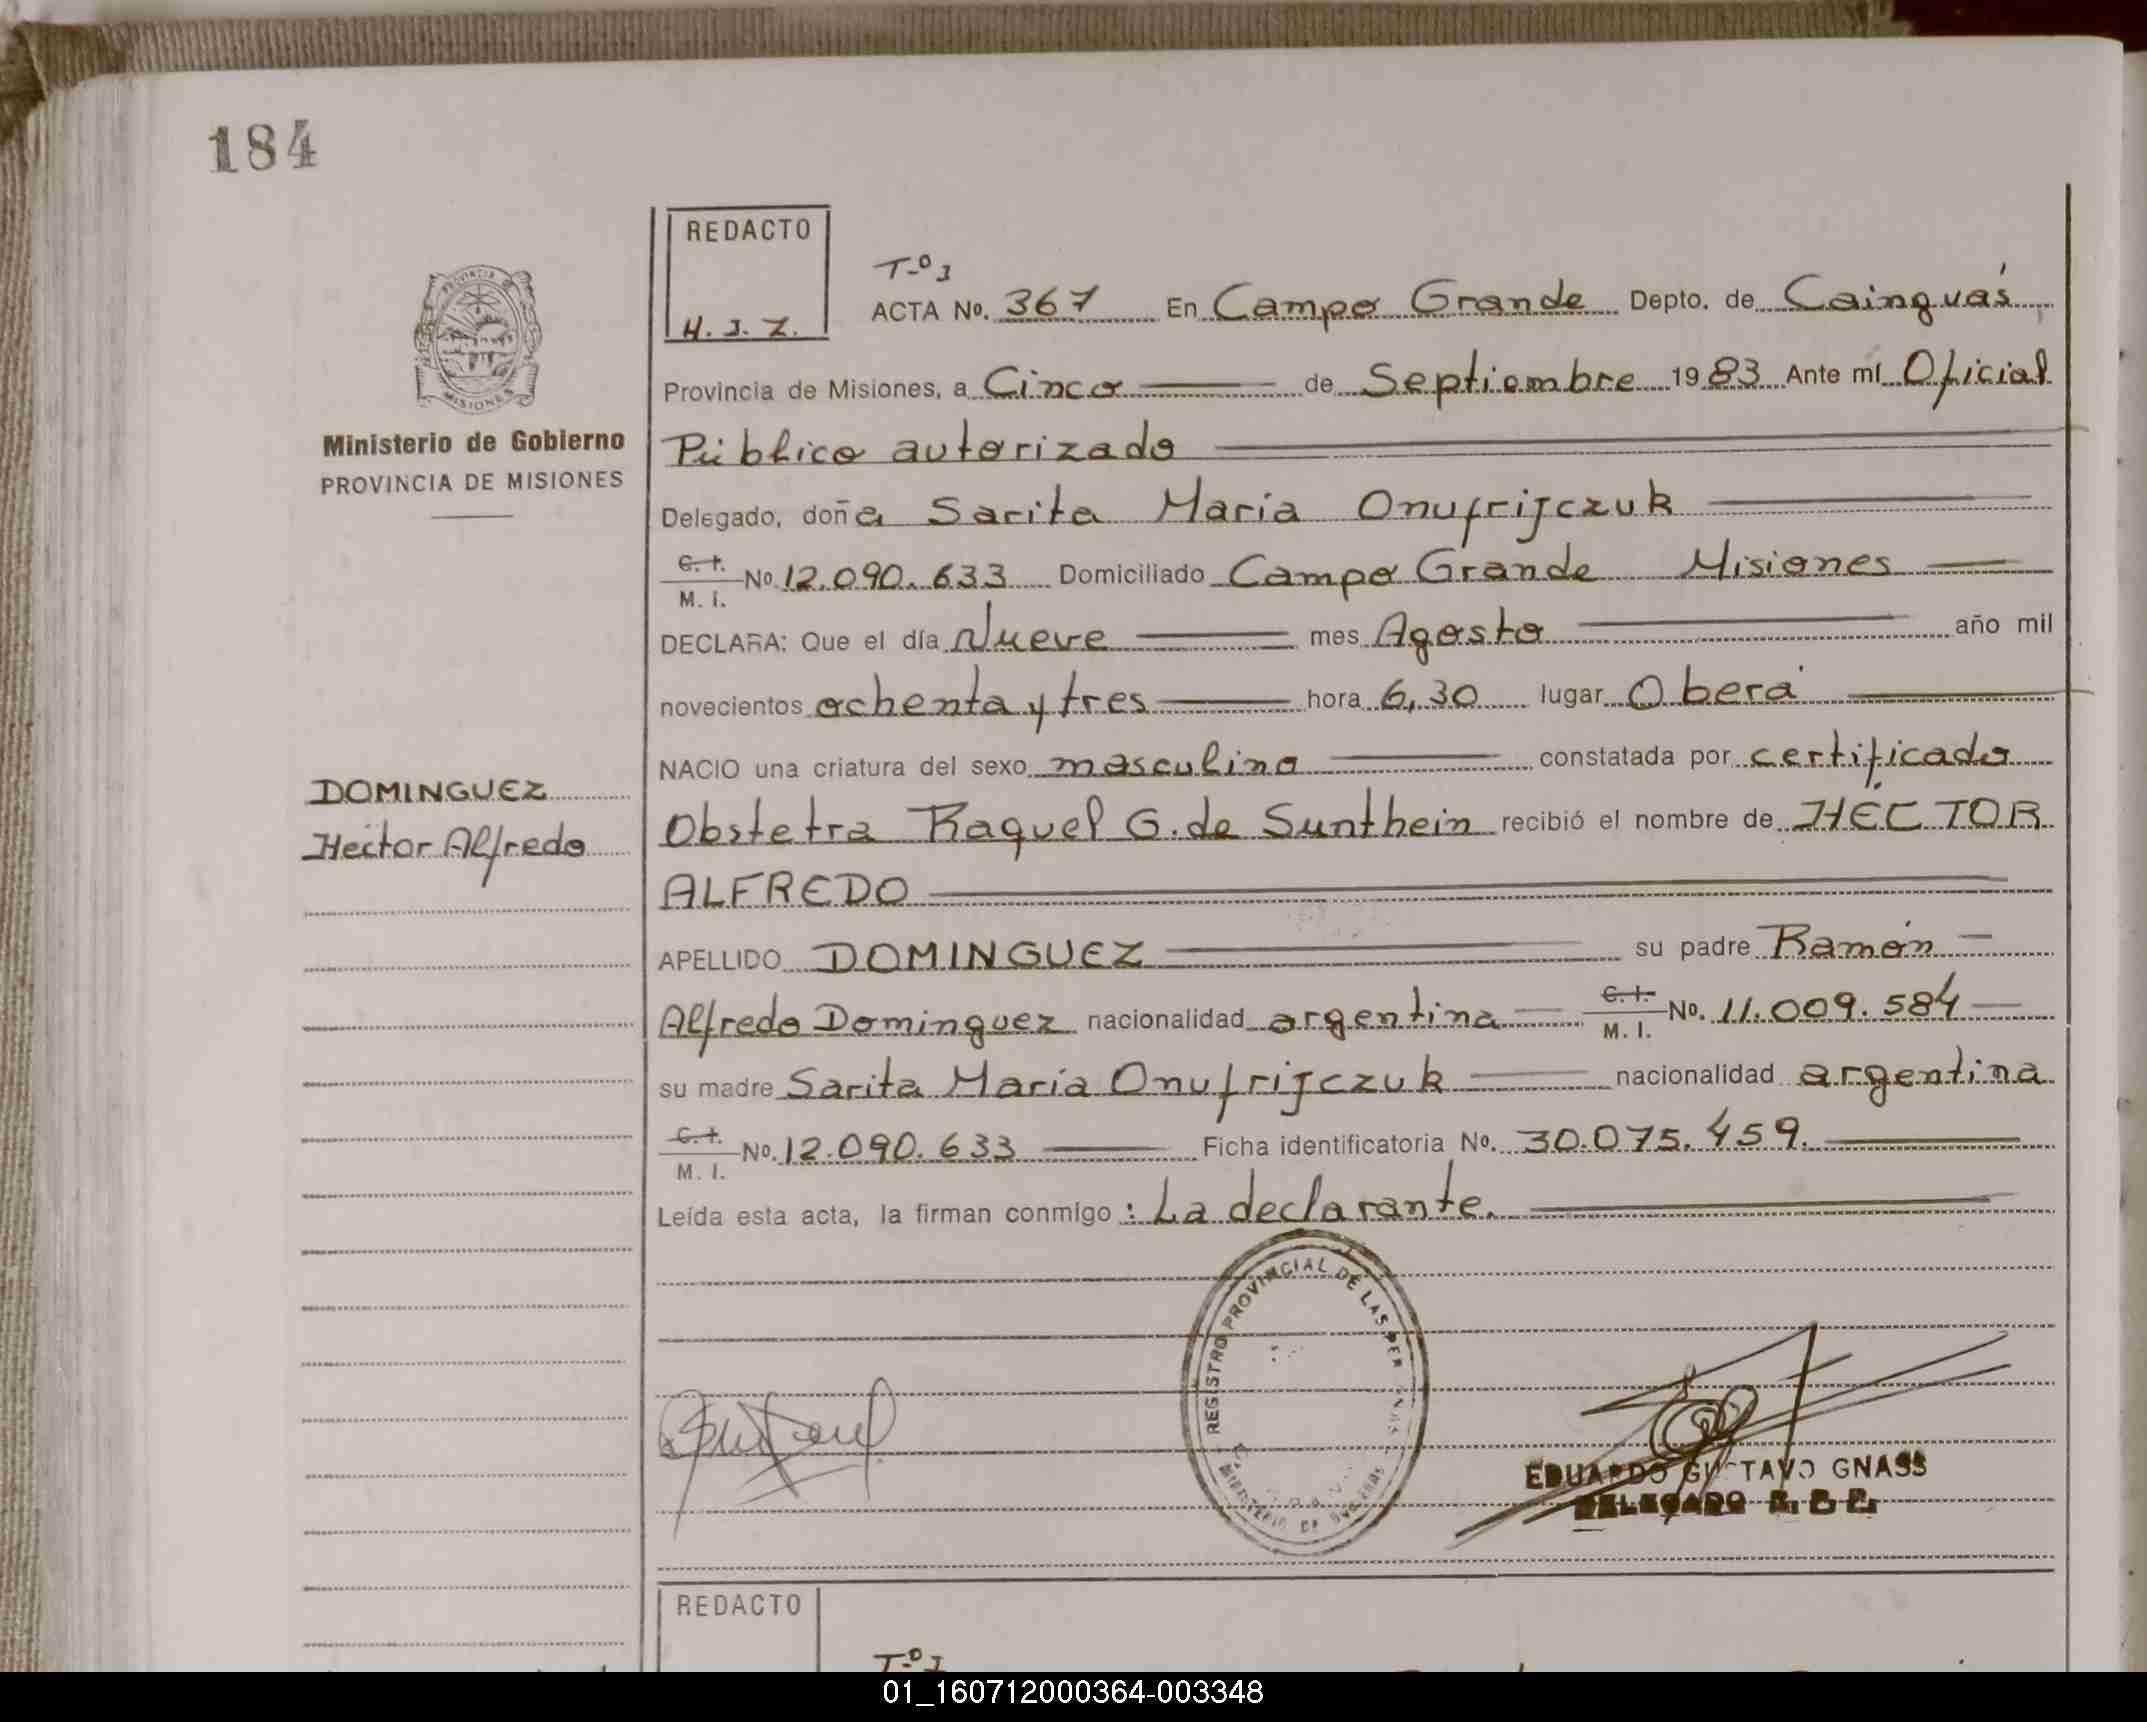 184
REDACTO
H. J. Z.
T-º J
ACTA Nº. 367 En Campo Grande Depto. de Cainguás
Provincia de Misiones, a Cinco de Septiembre 1983 Ante mí Oficial
Público autorizado
Delegado, doña Sarita Maria Onufrijczuk
C. I.
M. I. Nº 12.090.633 Domiciliado Campo Grande Misiones
DECLARA: Que el día Nueve mes Agosto año mil
novecientos ochenta y tres hora 6,30 lugar Oberá
NACIO una criatura del sexo masculino constatada por certificado
Obstetra Raquel G. de Sunthein recibió el nombre de HÉCTOR
ALFREDO
APELLIDO DOMINGUEZ su padre Ramón
Alfredo Dominguez nacionalidad argentina C. I. M. I. Nº. 11.009.584
su madre Sarita María Onufrijczuk nacionalidad argentina
C. I.
M. I. Nº. 12.090.633 Ficha identificatoria Nº. 30.075.459.
Leída esta acta, la firman conmigo : La declarante.
PROVINCIA DE
MISIONES
Ministerio de Gobierno
PROVINCIA DE MISIONES
DOMINGUEZ
Héctor Alfredo
REGISTRO PROVINCIAL DE LAS PER
MINISTERIO DE
EDUARDO GUSTAVO GNASS
DELEGADO
REDACTO
T-º J
01_160712000364-003348